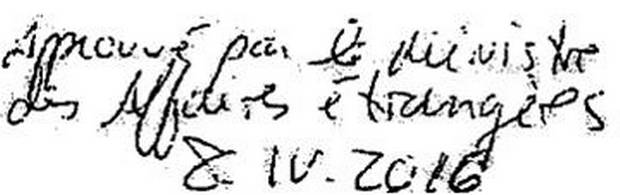 Approuvé par le ministre
des Affaires étrangères
8 IV. 2016